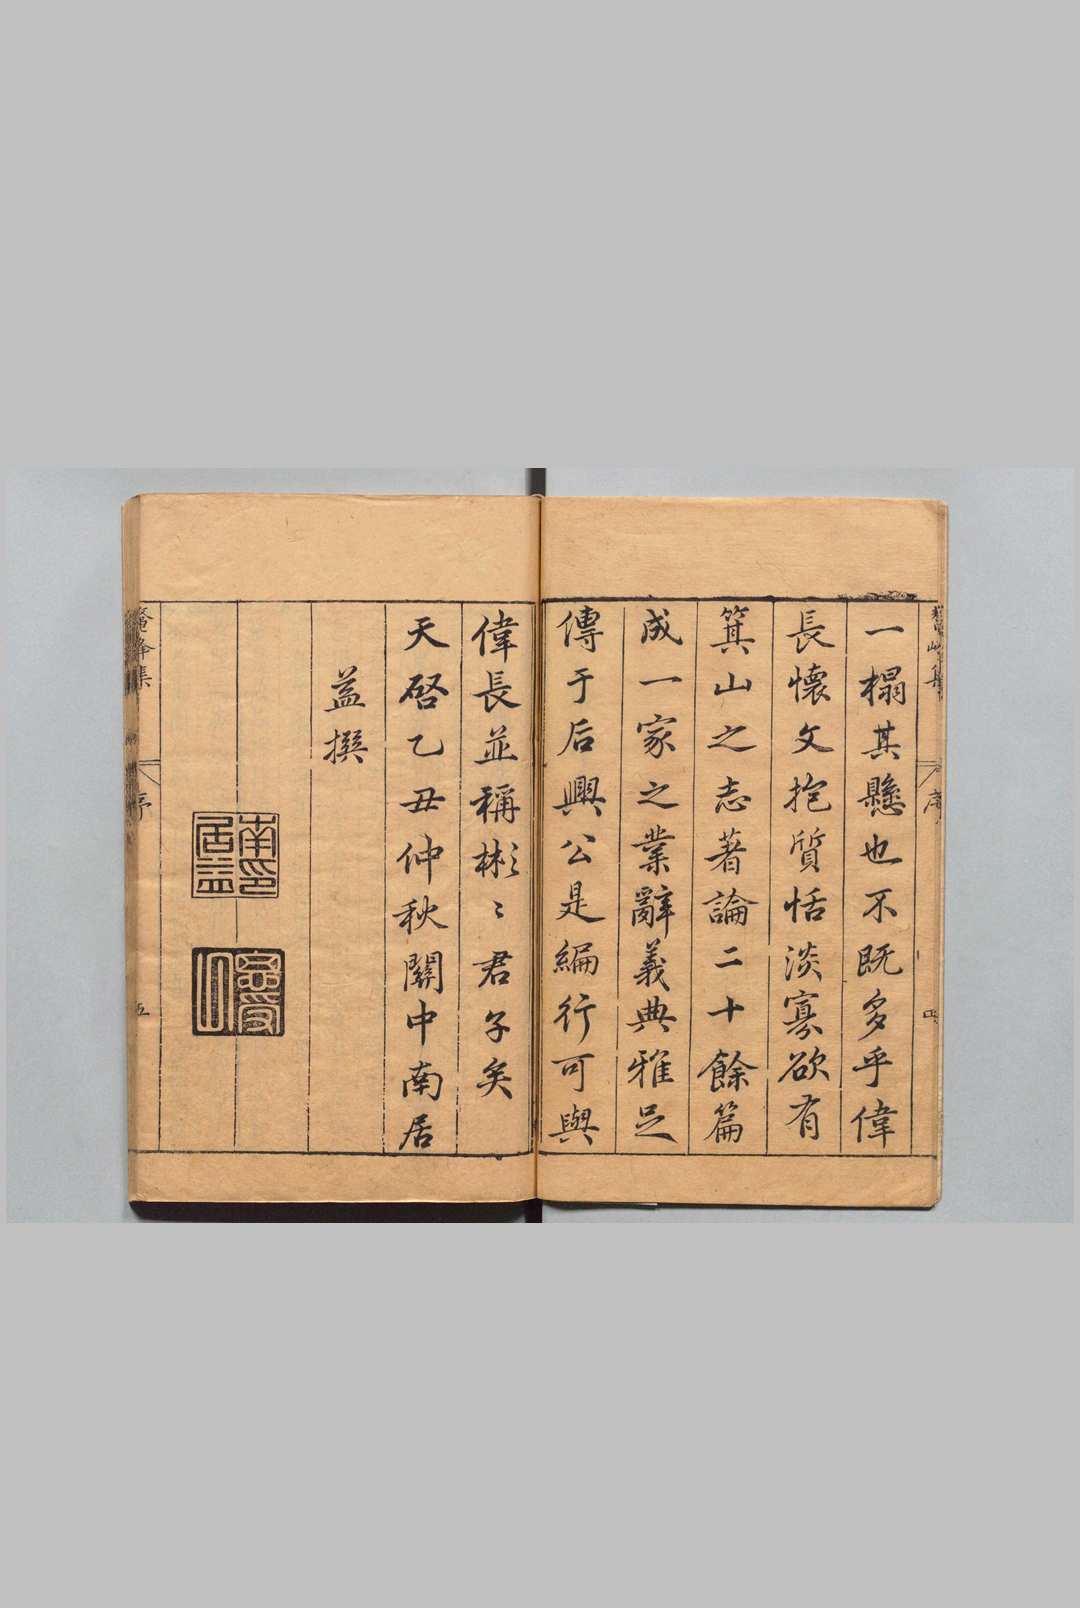 一榻其懸也不既多乎偉
長懷文抱質恬淡寡欲有
箕山之志著論二十餘篇
成一家之業辭義典雅足
傳于后興公是編行可與
偉長並稱彬〻君子矣
天啓乙丑仲秋關中南居
益撰
南居益印
鼇峰集
序
四
鼇峰集
序
五